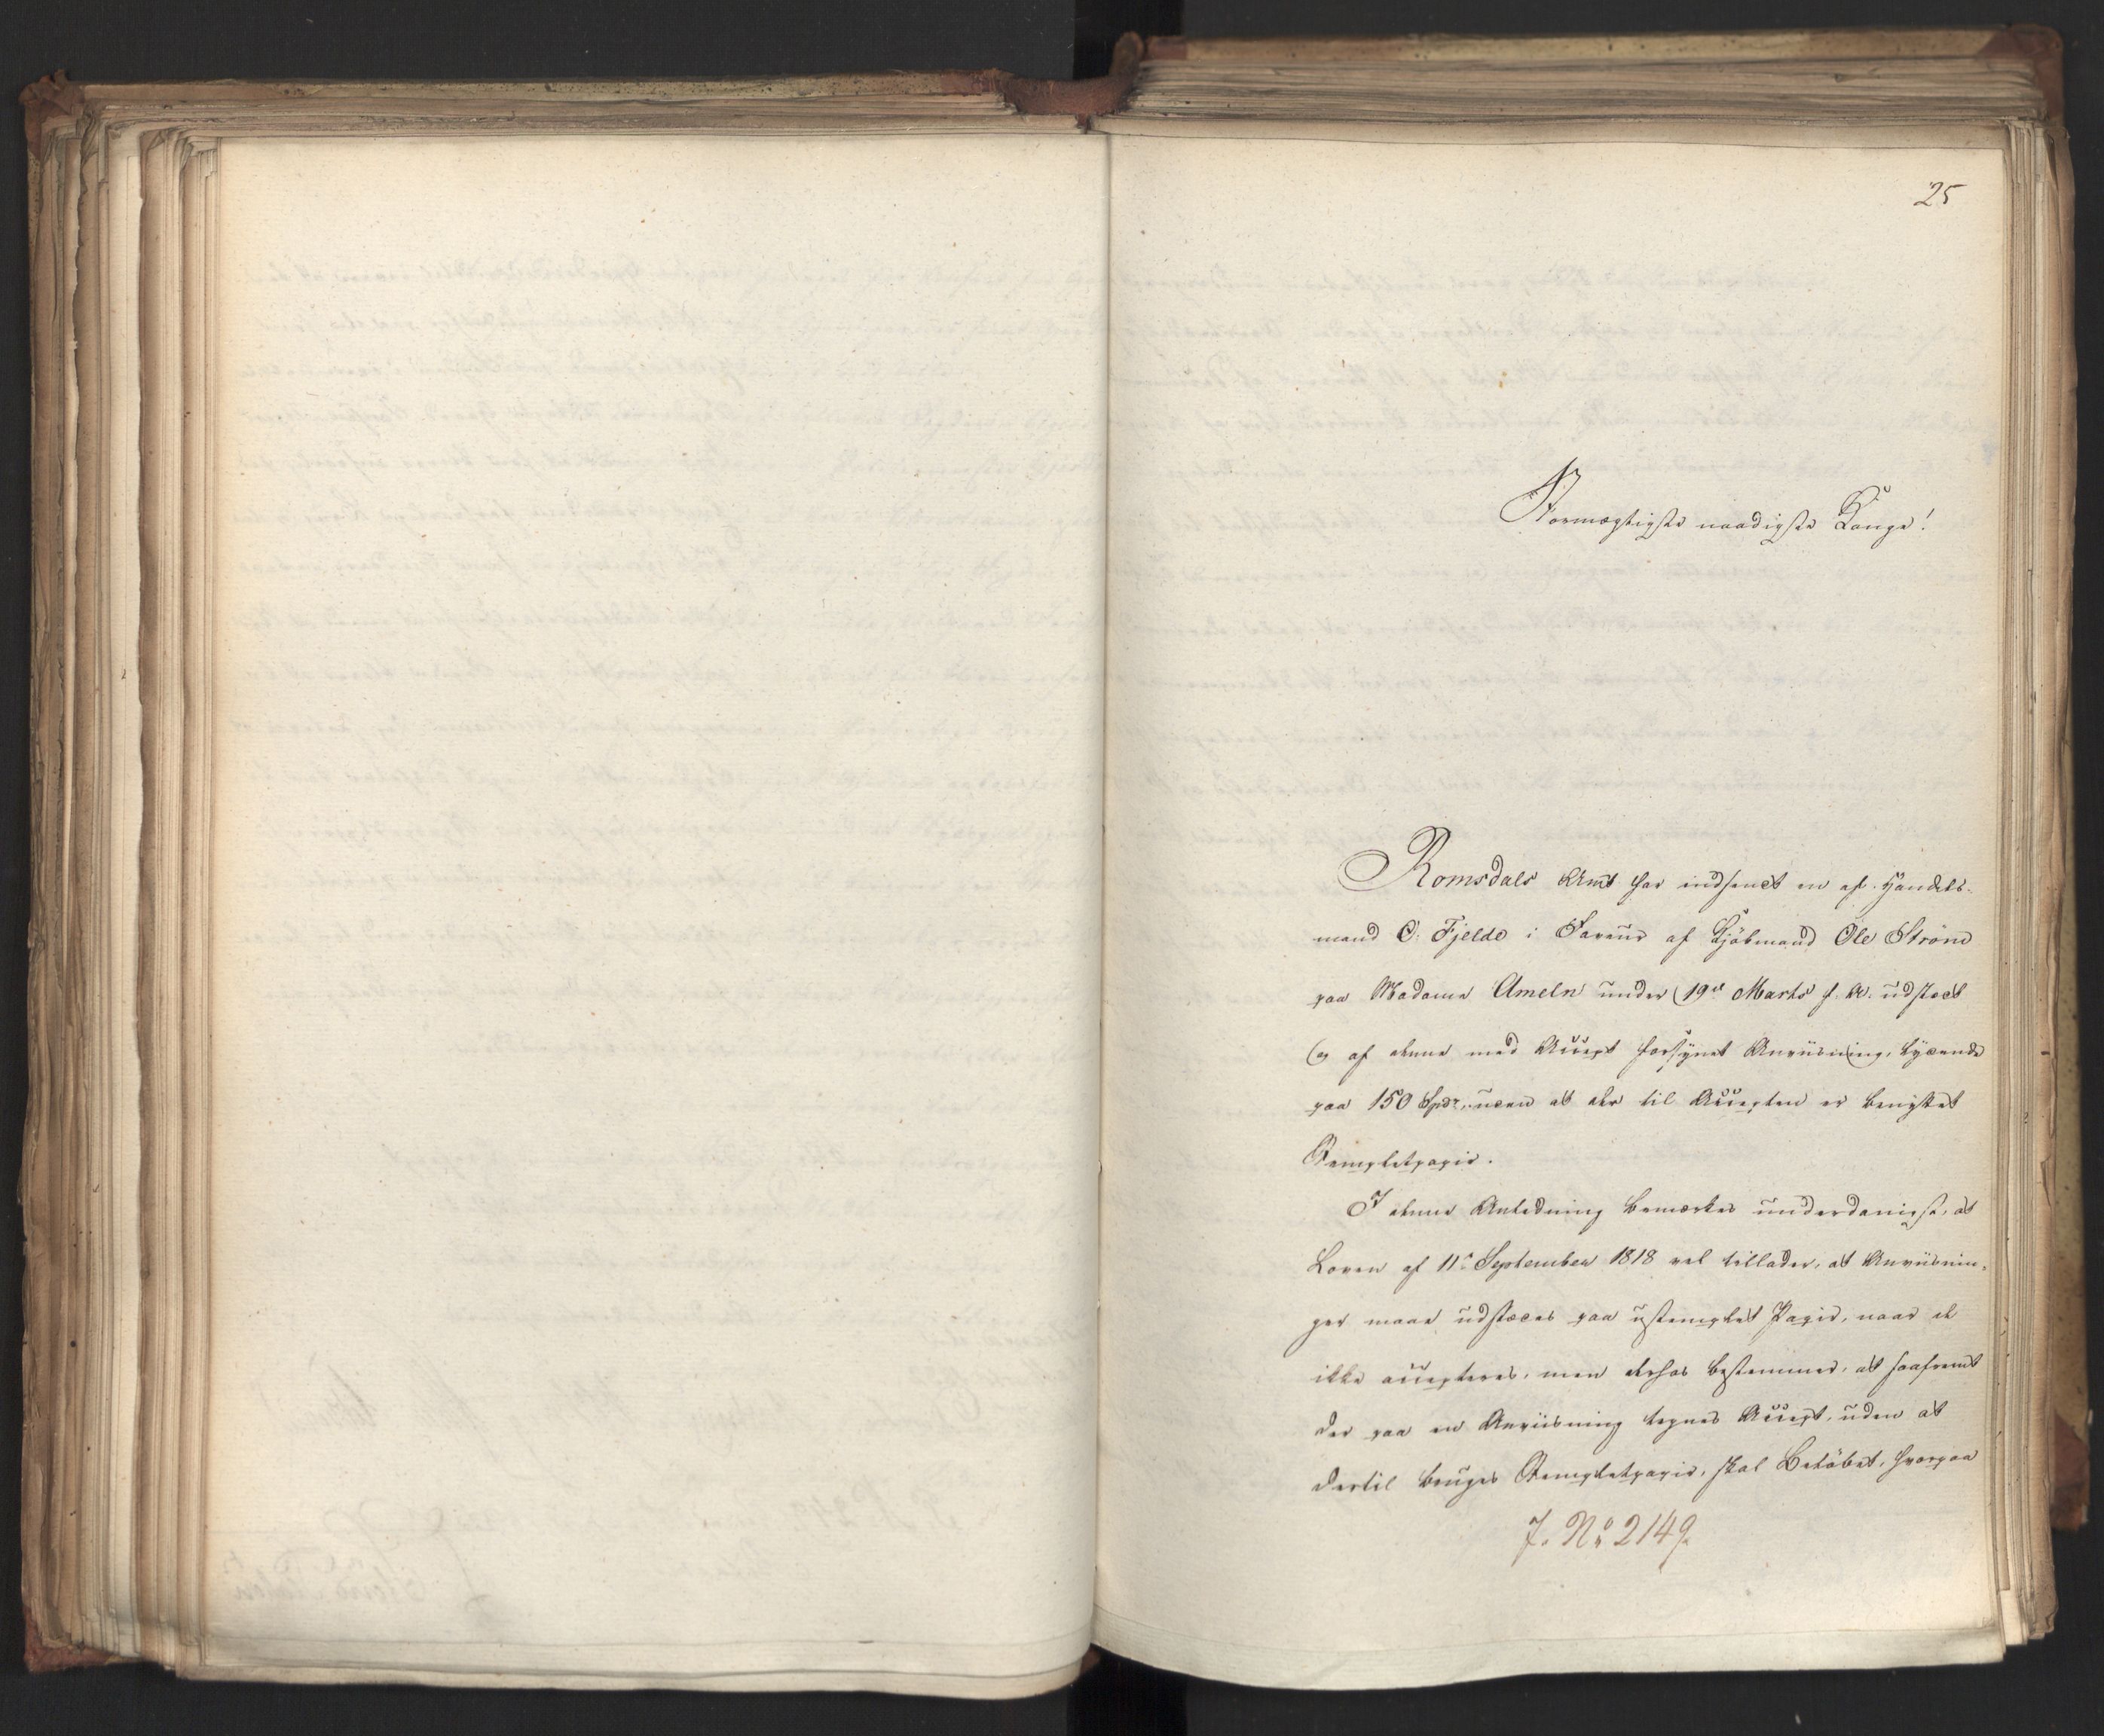 25
Stormægtigste naadigste Konge!
Romsdals Amt har indsendt en af Handels-
mand C. Fjelde i Faveur af Kjöbmand Ole Ström
paa Madame Ameln under 19de Marts f. A. udstedt
og af denne med Accept forsynet Anviisning, lydende
paa 150 Spdr., uden at der til Accepten er benyttet
Stempletpapir.
I denne Anledning bemærkes underdanigst, at
Loven af 11te September 1818 vel tillader, at Anviisnin-
ger maae udstædes paa ustemplet Papir, naar de
ikke accepteres, men derhos bestemmer, at saafremt
der paa en Anviisning tegnes Accept, uden at
dertil bruges Stempletpapir, skal Beløbet, hvorpaa
J. No 2149.